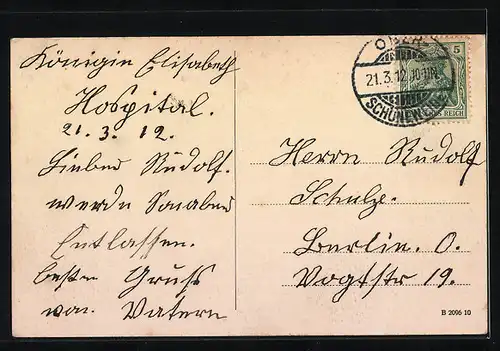 Königin Elisabeth
Hospital.
21. 3. 12.
Lieber Rudolf.
werde Sonabend
Entlassen.
besten Gruss
von. Vatern
OBER-
21.3.12.10-11N.
SCHÖNEWEIDE
5
DEUTSCHES REICH
Herrn Rudolf
Schulze.
Berlin. O.
Vogtstr 19.
B 2096 10